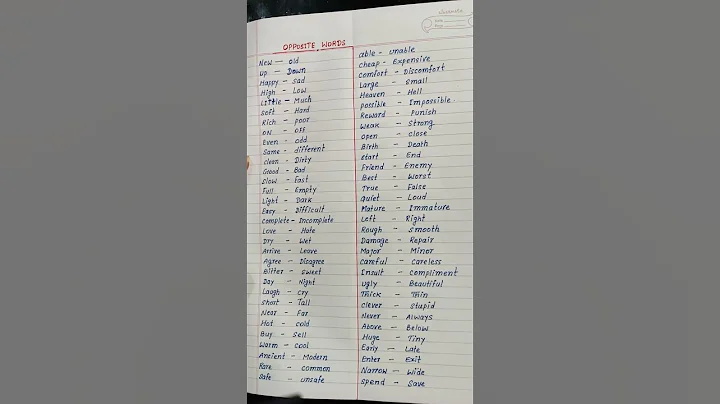 OPPOSITE WORDS
New — old
Up — Down
Happy — Sad
High — Low
Little — Much
Soft — Hard
Rich — poor
ON — off
Even — odd
Same — different
clean — Dirty
Good — Bad
Slow — Fast
Full — Empty
Light — Dark
Easy — Difficult
Complete — Incomplete
Love — Hate
Dry — Wet
Arrive — Leave
Agree — Disagree
Bitter — sweet
Day — Night
Laugh — cry
Short — Tall
Near — Far
Hot — cold
Buy — Sell
Warm — cool
Ancient — Modern
Rare — common
Safe — unsafe
able — unable
cheap — Expensive
Comfort — Discomfort
Large — Small
Heaven — Hell
possible — Impossible
Reward — Punish
Weak — Strong
open — close
Birth — Death
start — End
Friend — Enemy
Best — Worst
True — False
Quiet — Loud
Mature — Immature
Left — Right
Rough — smooth
Damage — Repair
Major — Minor
Careful — Careless
Insult — compliment
ugly — Beautiful
Thick — Thin
clever — stupid
Never — Always
Above — Below
Huge — Tiny
Early — Late
Enter — Exit
Narrow — Wide
Spend — Save